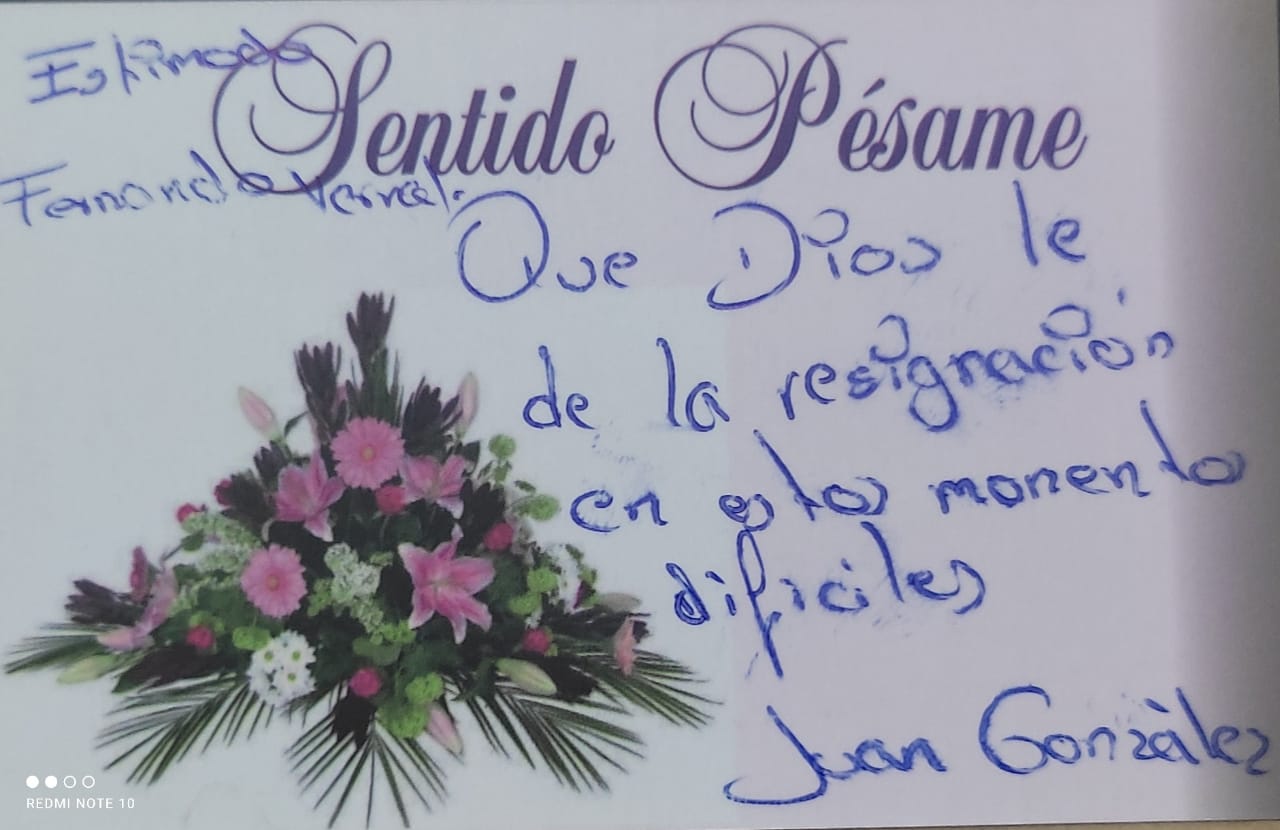 Estimado
Sentido Pésame
Fernando
Que Dios le
de la resignación
en estos momento
dificiles
Juan Gonzàlez
REDMI NOTE 10